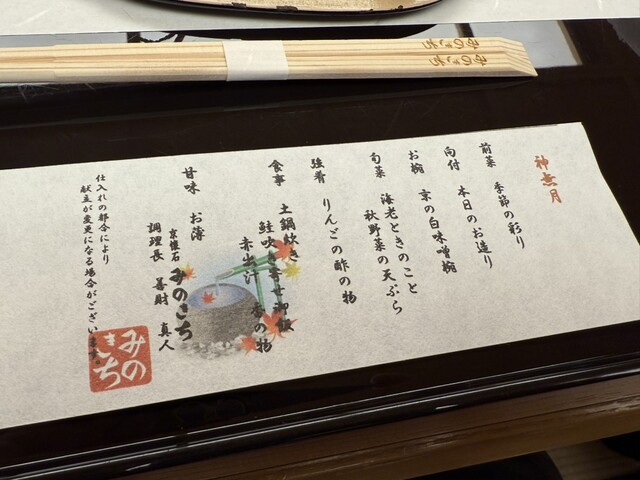 神無月
前菜 季節の彩り
向付 本日のお造り
お椀 京の白味噌椀
旬菜 海老ときのこと
秋野菜の天ぷら
強肴 りんごの酢の物
食事 土鍋炊き
鮭吹き寄せ御飯
赤出汁 香の物
甘味 お薄
京懐石 みのきち
調理長 善財 真人
仕入れの都合により
献立が変更になる場合がございます。
みの
きち
みのきち
みのきち